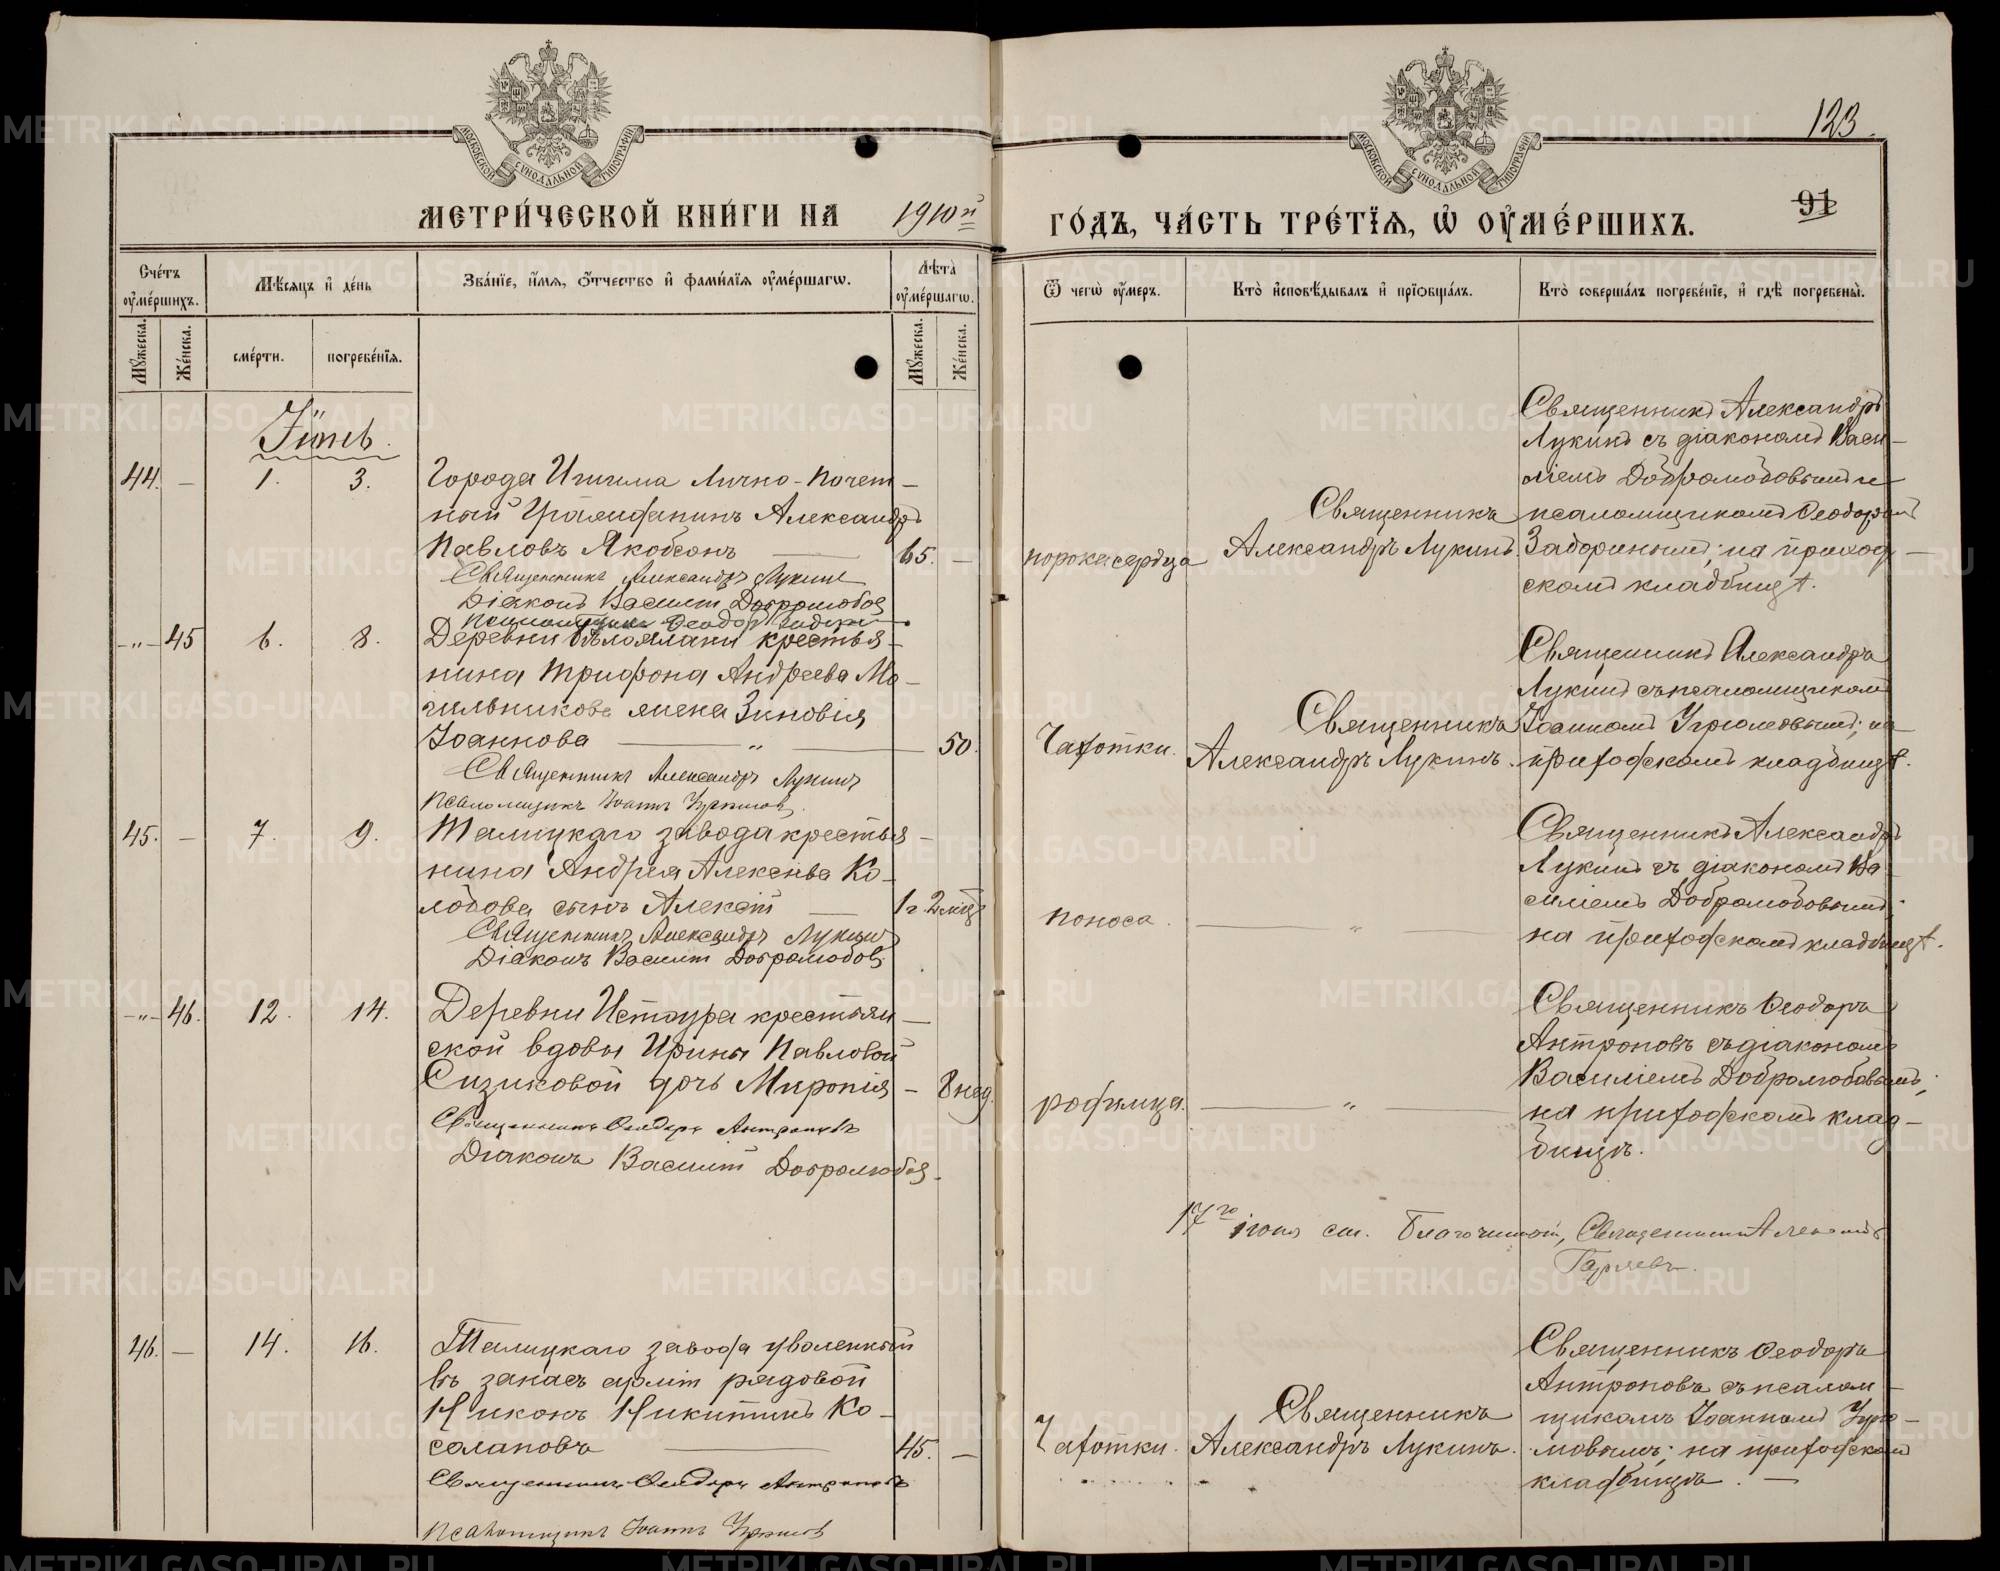 МОСКОВСКОЙ СИНОДАЛЬНОЙ ТИПОГРАФІИ
МОСКОВСКОЙ СИНОДАЛЬНОЙ ТИПОГРАФІИ
123.
91
МЕТРИ́ЧЕСКОЙ КНИ́ГИ НА 1910й ГО́ДЪ, ЧА́СТЬ ТРЕ́ТІЯ, Ѡ ОУ҆МЕ́РШИХЪ.
Сче́тъ оу҆ме́ршихъ.
Мѣ́сяцъ и҆ де́нь
Зва́ніе, и҆́мя, ѻ҆́тчество и҆ фами́лія оу҆ме́ршагѡ.
Лѣ́та оу҆ме́ршагѡ.
Ѿ чегѡ̀ оу҆́меръ.
Кто̀ и҆сповѣ́дывалъ и҆ прїѡбща́лъ.
Кто̀ соверша́лъ погребе́ніе, и҆ гдѣ̀ погребены̀.
Мꙋ́жеска.
Же́нска.
сме́рти.
погребе́нія.
Мꙋ́жеска.
Же́нска.
Іюнь.
44. — 1. 3.
Города Ишима Лично-Почет-
ный Гражданинъ Александръ
Павловъ Якобсонъ — 65. —
Священникъ Александръ Лукинъ
Діаконъ Василій Добролюбовъ
Псаломщикъ Ѳеодоръ
порока сердца
Священникъ
Александръ Лукинъ.
Священникъ Александръ
Лукинъ съ діакономъ Васи-
ліемъ Добролюбовымъ и
псаломщикомъ Ѳеодоромъ
Задоринымъ; на приход-
скомъ кладбищѣ.
-„- 45 6. 8.
Деревни Бѣлоялани крестья-
нина Трифона Андреева Мо-
гильникова жена Зиновія
Іоаннова — „ — 50.
Священникъ Александръ Лукинъ
Псаломщикъ Іоаннъ
Чахотки.
Священникъ
Александръ Лукинъ.
Священникъ Александръ
Лукинъ съ псаломщикомъ
Іоанномъ на
приходскомъ кладбищѣ.
45. — 7. 9.
Талицкаго завода крестья-
нина Андрея Алексѣева Ко-
лобова сынъ Алексѣй — 1 г. 2 мѣс.
Священникъ Александръ Лукинъ
Діаконъ Василій Добролюбовъ
поноса.
— „ —
Священникъ Александръ
Лукинъ съ діакономъ Ва-
силіемъ Добролюбовымъ;
на приходскомъ кладбищѣ.
-„- 46. 12. 14.
Деревни Истоура крестьян-
ской вдовы Ирины Павловой
Сизиковой дочь Миропія — 8 нед.
Священникъ Ѳеодоръ Антроповъ
Діаконъ Василій Добролюбовъ.
родимца.
— „ —
Священникъ Ѳеодоръ
Антроповъ съ діакономъ
Василіемъ Добролюбовымъ;
на приходскомъ клад-
бищѣ.
17го іюня см. Благочинный, Священникъ
46. — 14. 16.
Талицкаго завода уволенный
въ запасъ арміи рядовой
Никонъ Никитинъ Ко-
солаповъ — 45. —
Священникъ Ѳеодоръ Антроповъ
Псаломщикъ Іоаннъ
Чахотки.
Священникъ
Александръ Лукинъ.
Священникъ Ѳеодоръ
Антроповъ съ псалом-
щикомъ Іоанномъ
на приходскомъ
кладбищѣ. —
METRIKI.GASO-URAL.RU